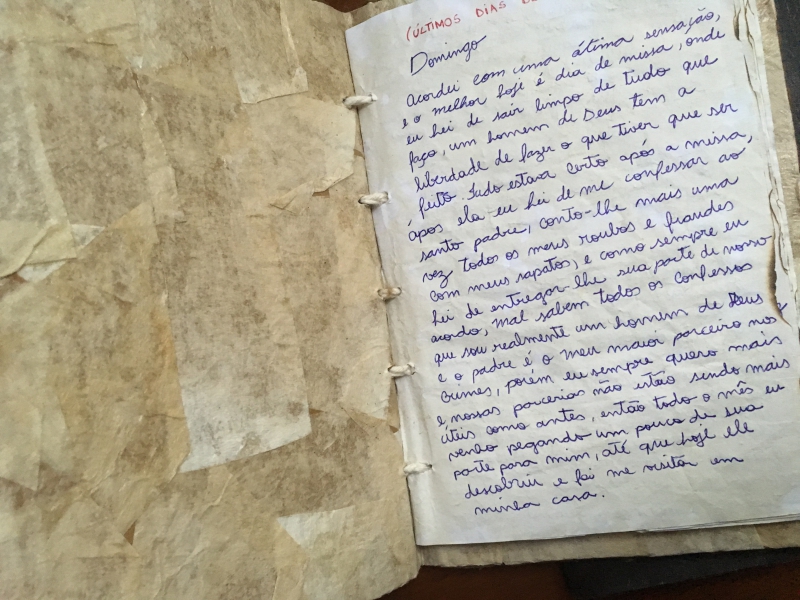 (ÚLTIMOS DIAS DE
Domingo
Acordei com uma ótima sensação,
e o melhor hoje é dia de missa, onde
eu hei de sair limpo de tudo que
faço, um homem de Deus tem a
liberdade de fazer o que tiver que ser
feito. Tudo estava certo após a missa,
após ela eu hei de me confessar ao
santo padre, conto-lhe mais uma
vez todos os meus roubos e fraudes
com meus sapatos, e como sempre eu
hei de entregar-lhe sua parte de nosso
acordo, mal sabem todos os confessos
que sou realmente um homem de Deus
e o padre é o meu maior parceiro nos
crimes, porém eu sempre quero mais
e nossas parcerias não estão sendo mais
úteis como antes, então todo o mês eu
venho pegando um pouco de sua
parte para mim, até que hoje ele
descobriu e foi me visitar em
minha casa.